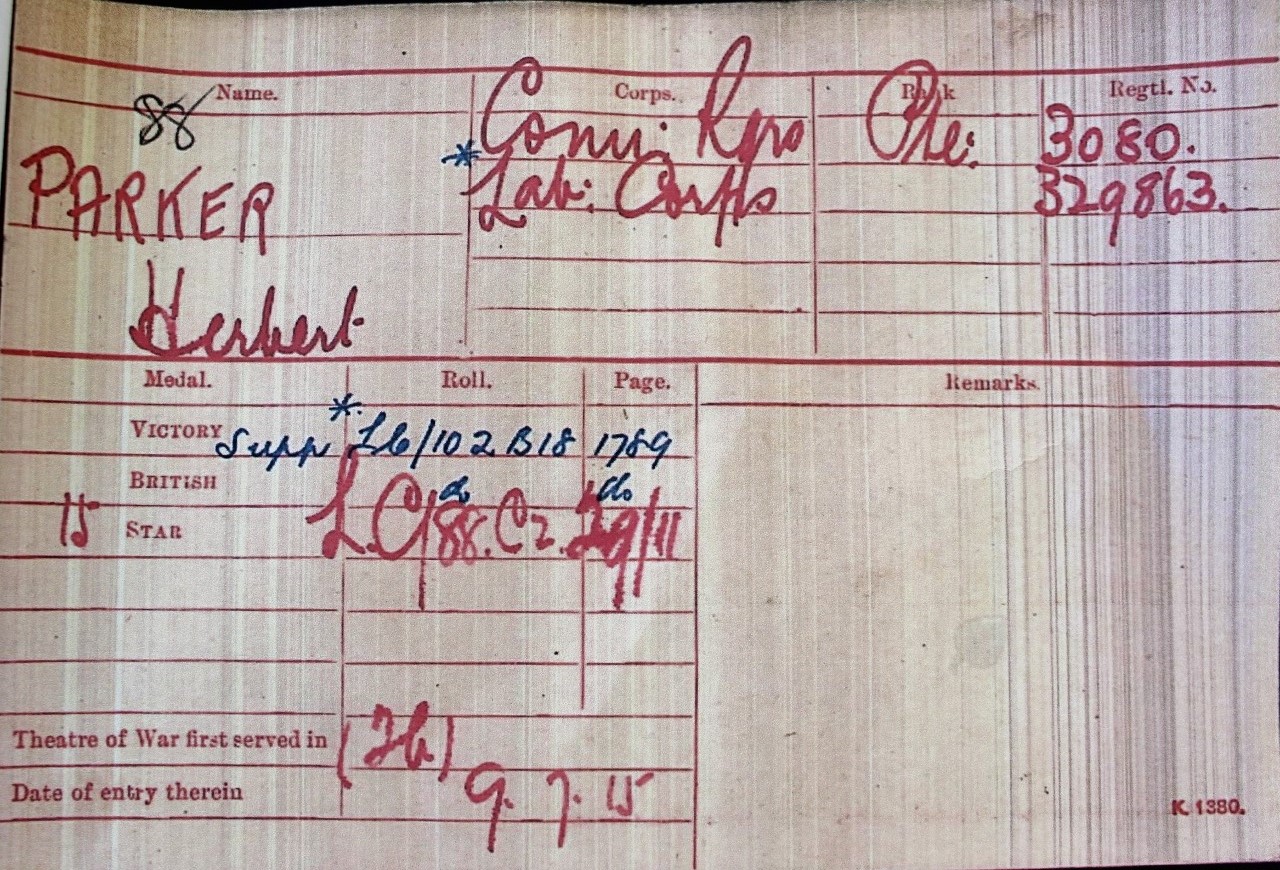 Name. Corps. Rank Regtl. No.
88
Conn: Rgrs Pte: 3080.
* Lab: Corps 329863.
PARKER
Herbert
Medal. Roll. Page. Remarks.
*
VICTORY Supp L6/102 B18 1789
BRITISH do do
15 STAR L.C/88.C2. 29/11
Theatre of War first served in (2b)
Date of entry therein 9. 7. 15
K. 1380.